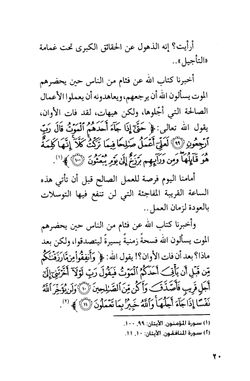 أرأيت؟ إنه الذهول عن الحقائق الكبرى تحت غمامة
«التأجيل»..
أخبرنا كتاب الله عن فئام من الناس حين يحضرهم
الموت يسألون الله أن يرجعهم، ويعاهدونه أن يعملوا الأعمال
الصالحة التي أجّلوها، ولكن هيهات، لقد فات الأوان،
يقول الله تعالى: ﴿ حَتَّىٰ إِذَا جَاءَ أَحَدَهُمُ الْمَوْتُ قَالَ رَبِّ
ارْجِعُونِ ﴿٩٩﴾ لَعَلِّي أَعْمَلُ صَالِحًا فِيمَا تَرَكْتُ كَلَّا إِنَّهَا كَلِمَةٌ
هُوَ قَائِلُهَا وَمِن وَرَائِهِم بَرْزَخٌ إِلَىٰ يَوْمِ يُبْعَثُونَ ﴿١٠٠﴾ ﴾(١).
أمامنا اليوم فرصة للعمل الصالح قبل أن تأتي هذه
الساعة القريبة المفاجئة التي لن تنفع فيها التوسلات
بالعودة لزمان العمل..
وأخبرنا كتاب الله عن فئام من الناس حين يحضرهم
الموت يسألون الله فسحة زمنية يسيرة ليتصدقوا، ولكن بعد
ماذا؟ بعد أن فات الأوان؟! يقول الله: ﴿ وَأَنفِقُوا مِن مَّا رَزَقْنَاكُم
مِّن قَبْلِ أَن يَأْتِيَ أَحَدَكُمُ الْمَوْتُ فَيَقُولَ رَبِّ لَوْلَا أَخَّرْتَنِي إِلَىٰ
أَجَلٍ قَرِيبٍ فَأَصَّدَّقَ وَأَكُن مِّنَ الصَّالِحِينَ ﴿١٠﴾ وَلَن يُؤَخِّرَ اللَّهُ
نَفْسًا إِذَا جَاءَ أَجَلُهَا وَاللَّهُ خَبِيرٌ بِمَا تَعْمَلُونَ ﴿١١﴾ ﴾(٢).
(١) سورة المؤمنون، الآيتان: ٩٩، ١٠٠.
(٢) سورة المنافقون، الآيتان: ١٠، ١١.
٢٠